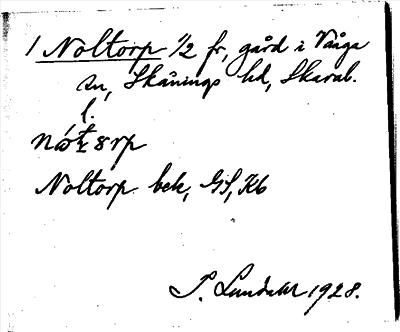 1 Noltorp 1/2 fr, gård i Vånga
sn, Skånings hd, Skarab.
l.
Noltorp bek, GS, Kb
P. Lundahl 1928.